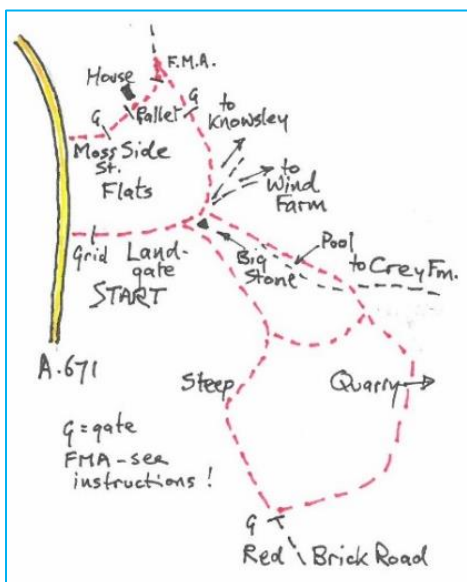 F.M.A.
House
G
Pallet
G
to
Knowsley
Moss Side
St.
Flats
to
Wind
Farm
Grid
Land-
gate
START
Big
Stone
Pool
to Crey Fm.
A.671
Steep
Quarry
G = gate
FMA - see
instructions!
G
Red Brick Road